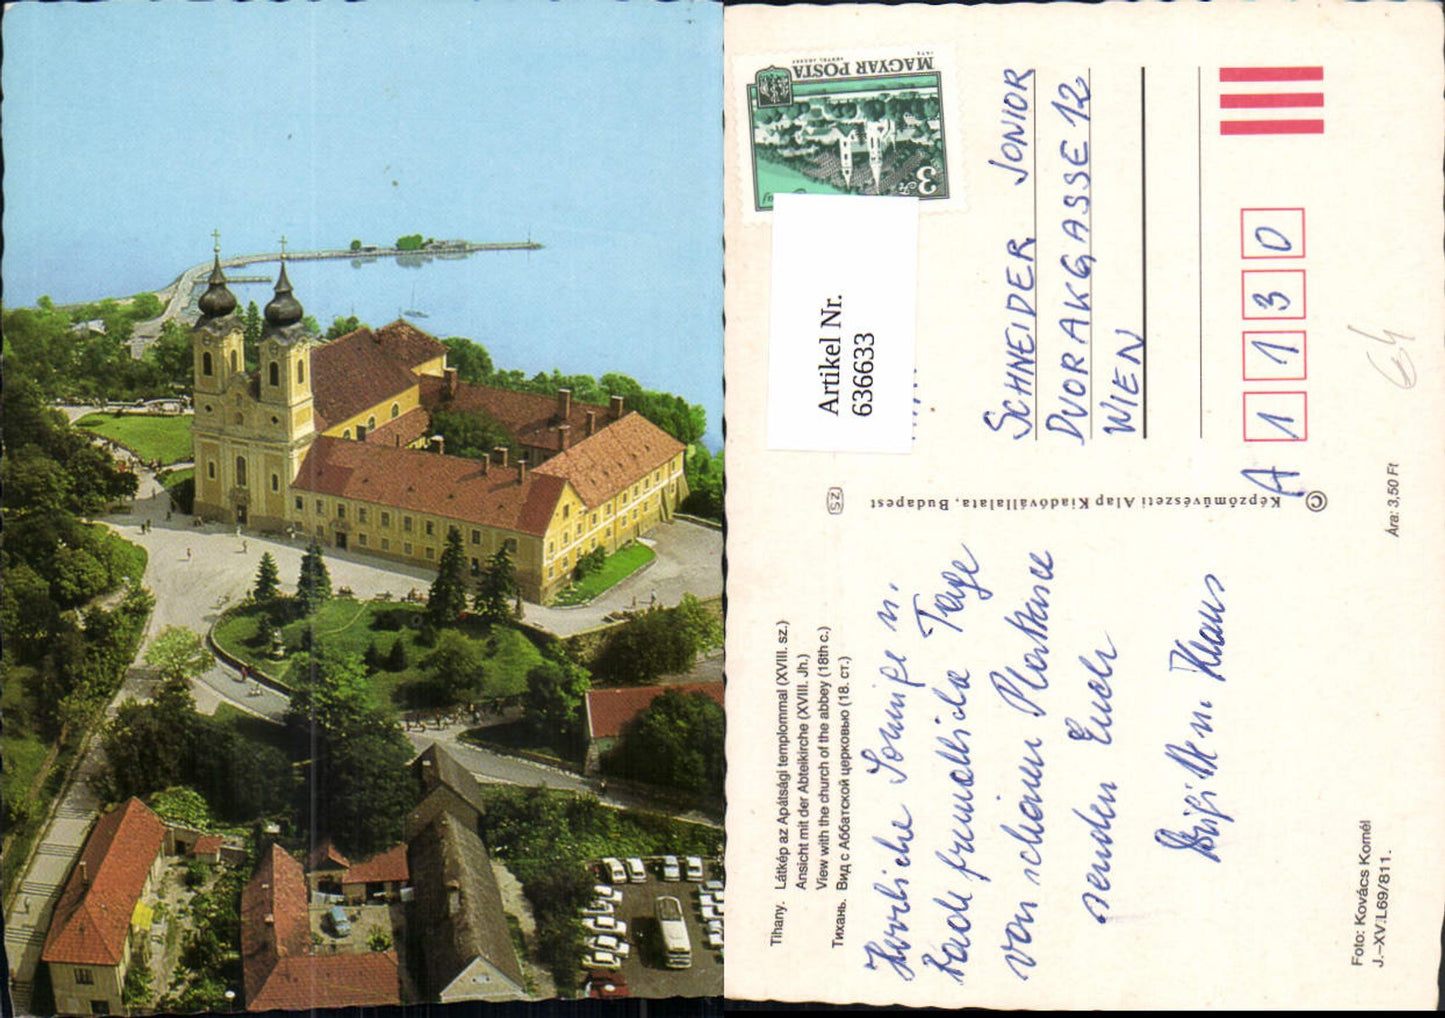 MAGYAR POSTA
3 Ft
Artikel Nr.
636633
SCHNEIDER JUNIOR
DVORAKGASSE 12
WIEN
A 1130
Képzőművészeti Alap Kiadóvállalata, Budapest
©
ZS
Ára: 3,50 Ft
64
Tihany. Látkép az Apátsági templommal (XVIII. sz.)
Ansicht mit der Abteikirche (XVIII. Jh.)
View with the church of the abbey (18th c.)
Тихань. Вид с Аббатской церковью (18. ст.)
Herzliche Sonnige u.
Bade freundliche Tage
vom schönen Plattensee
senden Euch
Brigitte u. Klaus
Foto: Kovács Kornél
J.-XV.L69/811.